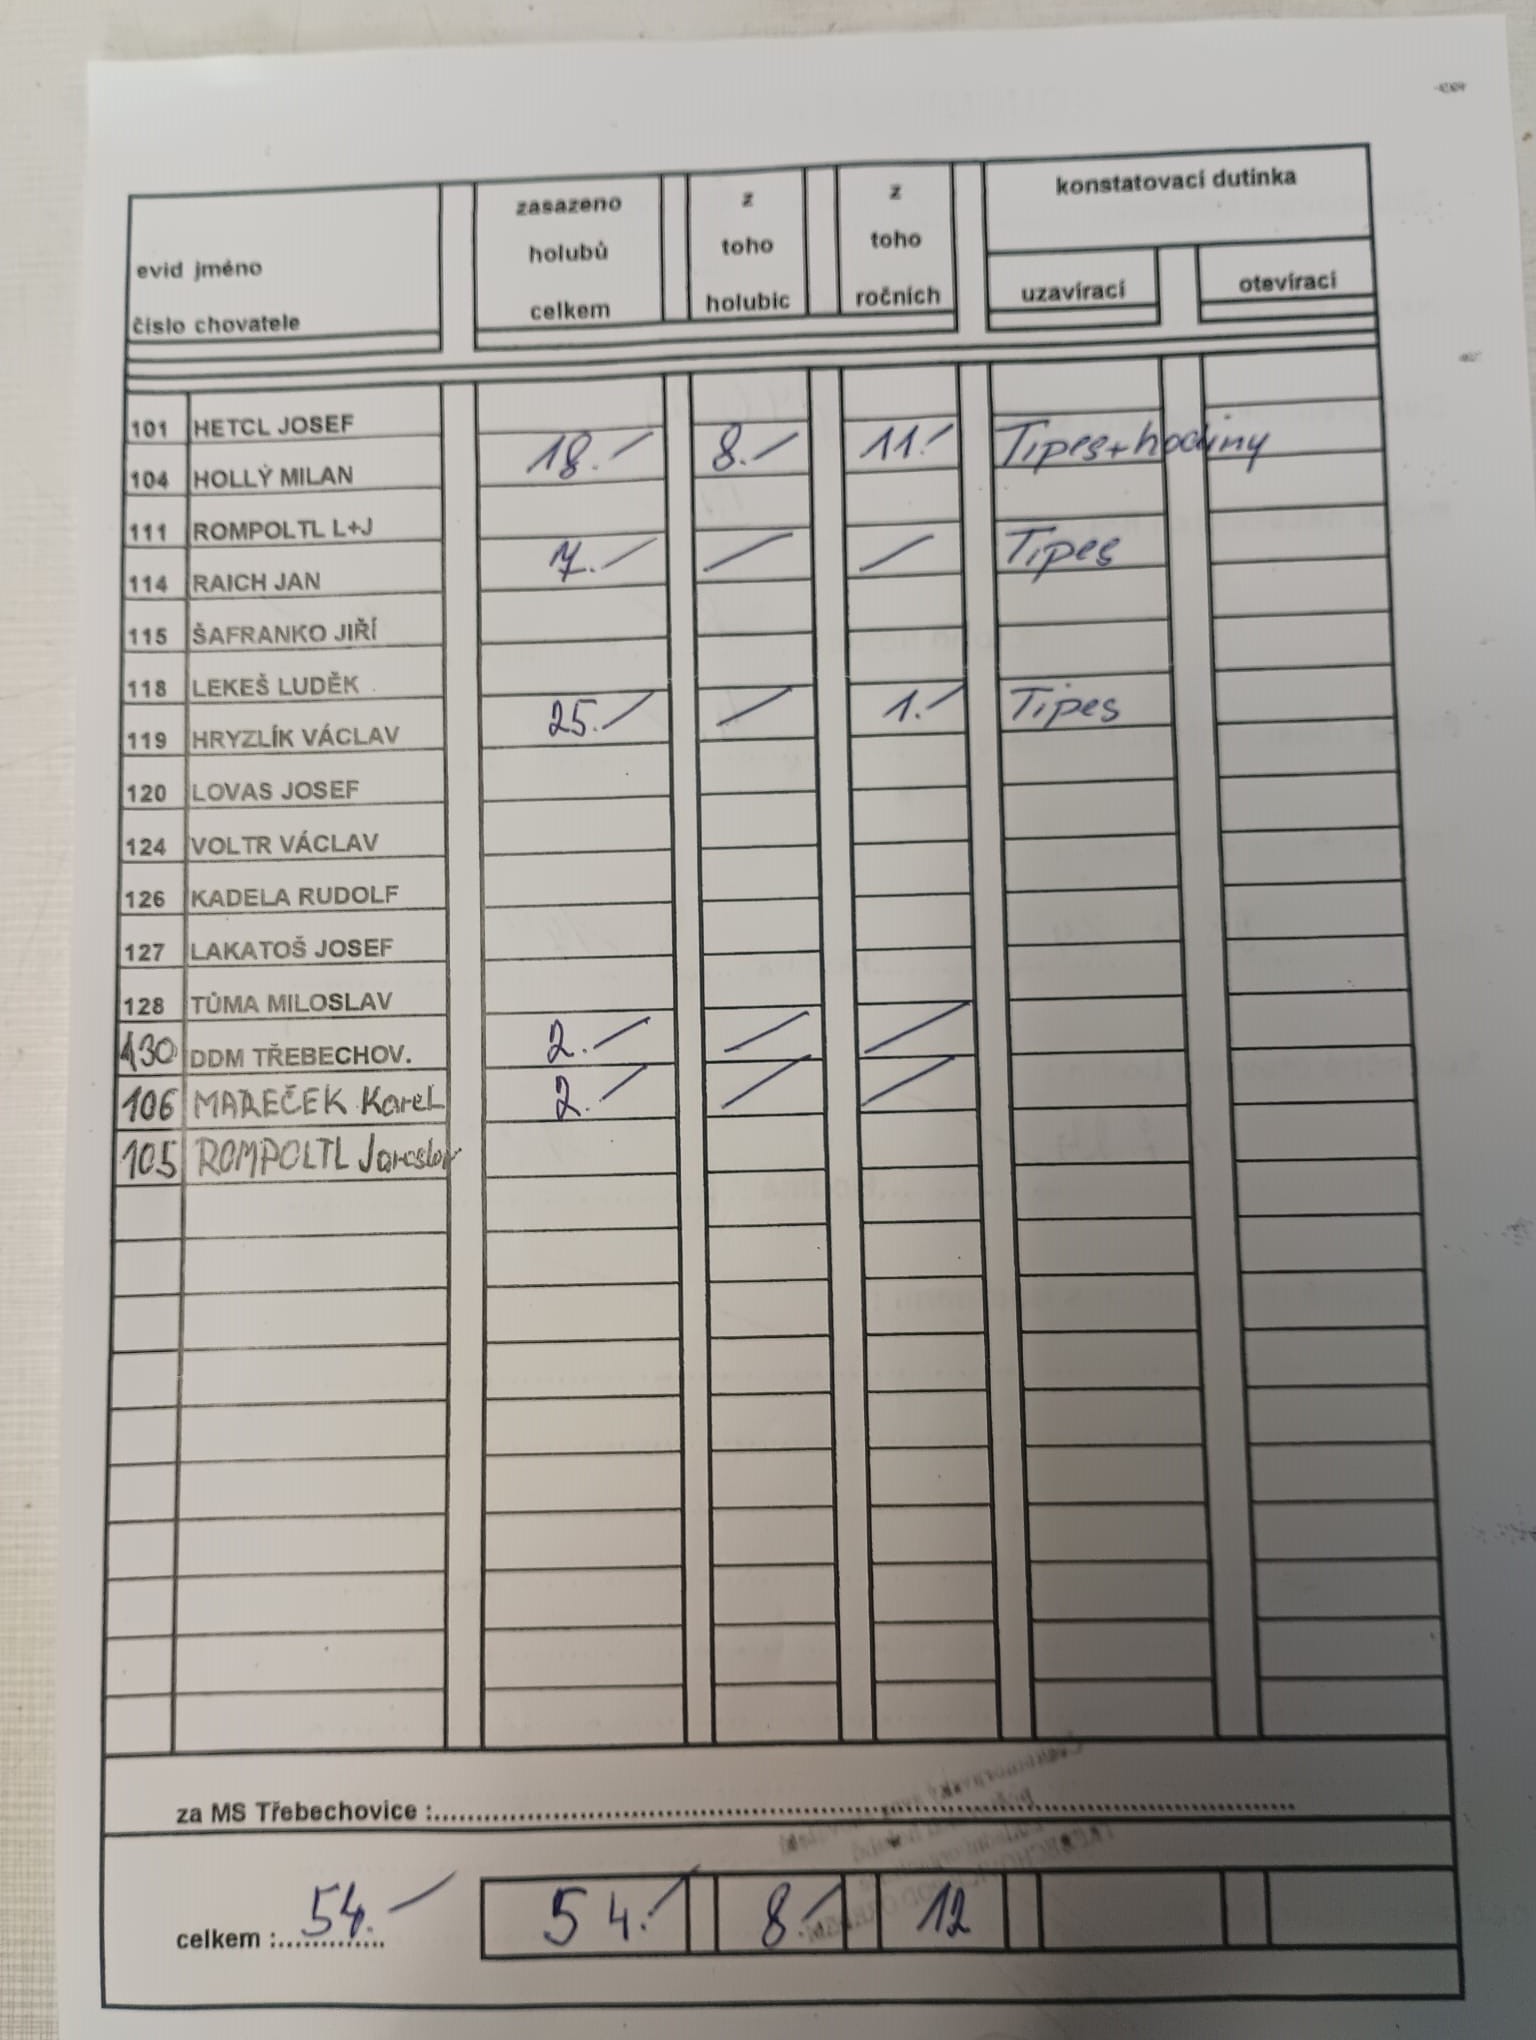 evid jméno
číslo chovatele
zasazeno
holubů
celkem
z
toho
holubic
z
toho
ročních
konstatovací dutinka
uzavírací
otevírací
101 HETCL JOSEF
104 HOLLÝ MILAN 18.- 8.- 11.- Tipes+hodiny
111 ROMPOLTL L+J
114 RAICH JAN 7.- - - Tipes
115 ŠAFRANKO JIŘÍ
118 LEKEŠ LUDĚK
119 HRYZLÍK VÁCLAV 25.- - 1.- Tipes
120 LOVAS JOSEF
124 VOLTR VÁCLAV
126 KADELA RUDOLF
127 LAKATOŠ JOSEF
128 TŮMA MILOSLAV
130 DDM TŘEBECHOV. 2.- - -
106 MAREČEK Karel 2.- - -
105 ROMPOLTL Jaroslav
za MS Třebechovice :
celkem : 54.- 54.- 8.- 12